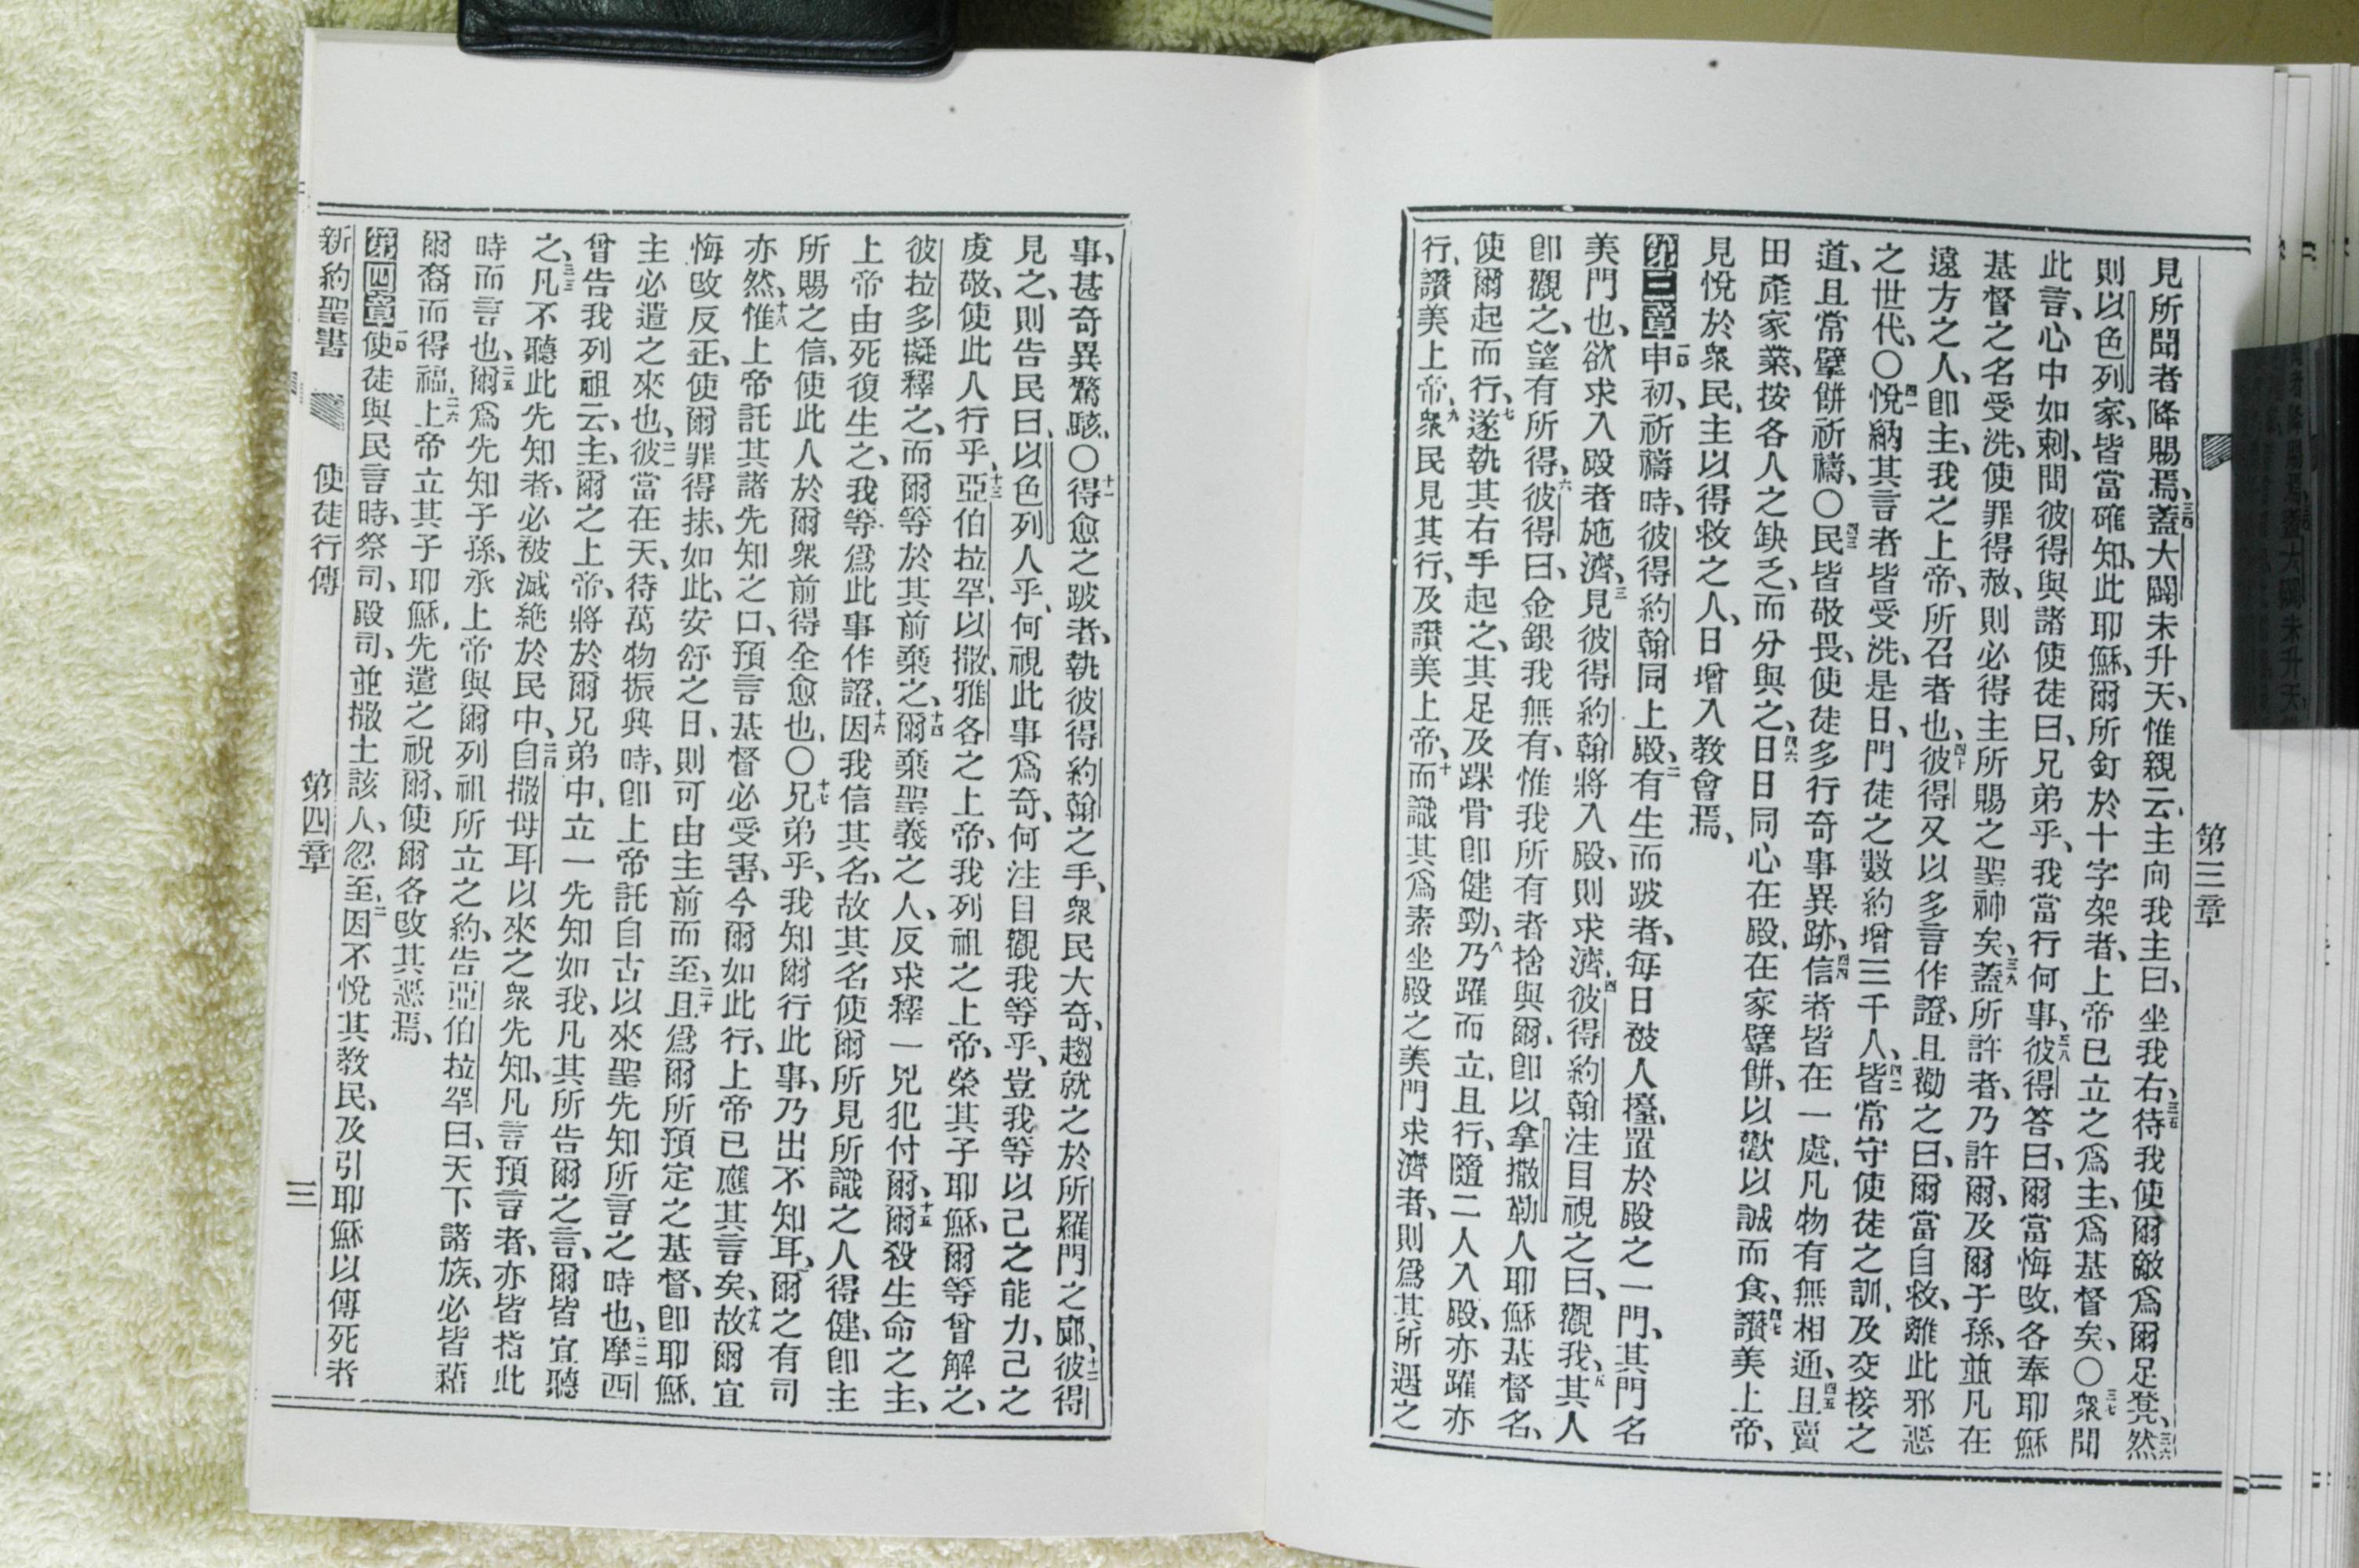 第三章
見所聞者降賜焉、三四蓋大闢未升天、惟親云、主向我主曰、坐我右、三五待我使爾敵爲爾足凳、三六然
則以色列家、皆當確知、此耶穌、爾所釘於十字架者、上帝已立之爲主、爲基督矣、〇三七衆聞
此言、心中如刺、問彼得與諸使徒曰、兄弟乎、我當行何事、三八彼得答曰、爾當悔改、各奉耶穌
基督之名受洗、使罪得赦、則必得主所賜之聖神矣、三九蓋所許者、乃許爾、及爾子孫、並凡在
遠方之人、卽主、我之上帝、所召者也、四十彼得又以多言作證、且勸之曰、爾當自救、離此邪惡
之世代、〇四一悅納其言者皆受洗、是日、門徒之數約增三千人、四二皆常守使徒之訓、及交接之
道、且常擘餅祈禱、〇四三民皆敬畏、使徒多行奇事異跡、四四信者皆在一處、凡物有無相通、四五且賣
田產家業、按各人之缺乏、而分與之、四六日日同心在殿、在家擘餅、以歡以誠而食、四七讚美上帝、
見悅於衆民、主以得救之人、日增入教會焉、
第三章一申初、祈禱時、彼得約翰同上殿、二有生而跛者、每日被人擡、置於殿之一門、其門名
美門也、欲求入殿者施濟、三見彼得約翰將入殿、則求濟、四彼得約翰注目視之曰、觀我、五其人
卽觀之、望有所得、六彼得曰、金銀我無有、惟我所有者捨與爾、卽以拿撒勒人耶穌基督名、
使爾起而行、七遂執其右手起之、其足及踝骨卽健勁、八乃躍而立、且行、隨二人入殿、亦躍亦
行、讚美上帝、九衆民見其行、及讚美上帝、十而識其爲素坐殿之美門求濟者、則爲其所遇之
事、甚奇異驚駭、〇十一得愈之跛者、執彼得約翰之手、衆民大奇、趨就之於所羅門之廊、十二彼得
見之、則告民曰、以色列人乎、何視此事爲奇、何注目觀我等乎、豈我等以己之能力、己之
虔敬、使此人行乎、十三亞伯拉罕、以撒、雅各之上帝、我列祖之上帝、榮其子耶穌、爾等曾解之、
彼拉多擬釋之、而爾等於其前棄之、十四爾棄聖義之人、反求釋一兇犯付爾、十五爾殺生命之主、
上帝由死復生之、我等爲此事作證、十六因我信其名、故其名使爾所見所識之人得健、卽主
所賜之信、使此人於爾衆前得全愈也、〇十七兄弟乎、我知爾行此事、乃出不知耳、爾之有司
亦然、十八惟上帝託其諸先知之口、預言基督必受害、今爾如此行、上帝已應其言矣、十九故爾宜
悔改反正、使爾罪得抹、如此、安舒之日、則可由主前而至、二十且爲爾所預定之基督、卽耶穌、
主必遣之來也、二一彼當在天、待萬物振興時、卽上帝託自古以來聖先知所言之時也、二二摩西
曾告我列祖云、主、爾之上帝、將於爾兄弟中、立一先知如我、凡其所告爾之言、爾皆宜聽
之、二三凡不聽此先知者、必被滅絕於民中、二四自撒母耳以來之衆先知、凡言預言者、亦皆指此
時而言也、二五爾爲先知子孫、承上帝與爾列祖所立之約、告亞伯拉罕曰、天下諸族、必皆藉
爾裔而得福、二六上帝立其子耶穌、先遣之祝爾、使爾各改其惡焉、
第四章一使徒與民言時、祭司、殿司、並撒土該人、忽至、二因不悅其教民、及引耶穌以傳死者
新約聖書 使徒行傳 第四章 三